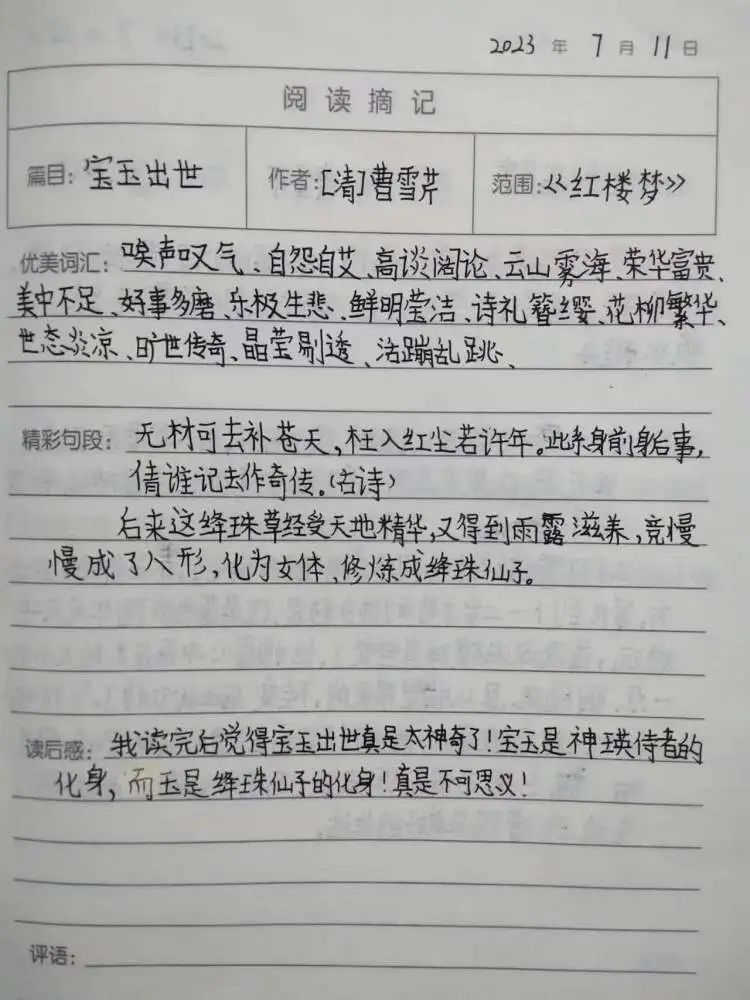 2023 年 7 月 11 日
阅读摘记
篇目: 宝玉出世 作者: [清]曹雪芹 范围: 《红楼梦》
优美词汇: 唉声叹气、自怨自艾、高谈阔论、云山雾海、荣华富贵、
美中不足、好事多磨、乐极生悲、鲜明莹洁、诗礼簪缨、花柳繁华、
世态炎凉、旷世传奇、晶莹剔透、活蹦乱跳、
精彩句段: 无材可去补苍天,枉入红尘若许年。此系身前身后事,
倩谁记去作奇传。(石诗)
后来这绛珠草经受天地精华,又得到雨露滋养,竞慢
慢成了人形,化为女体、修炼成绛珠仙子。
读后感: 我读完后觉得宝玉出世真是太神奇了!宝玉是神瑛侍者的
化身,而玉是绛珠仙子的化身!真是不可思议!
评语: